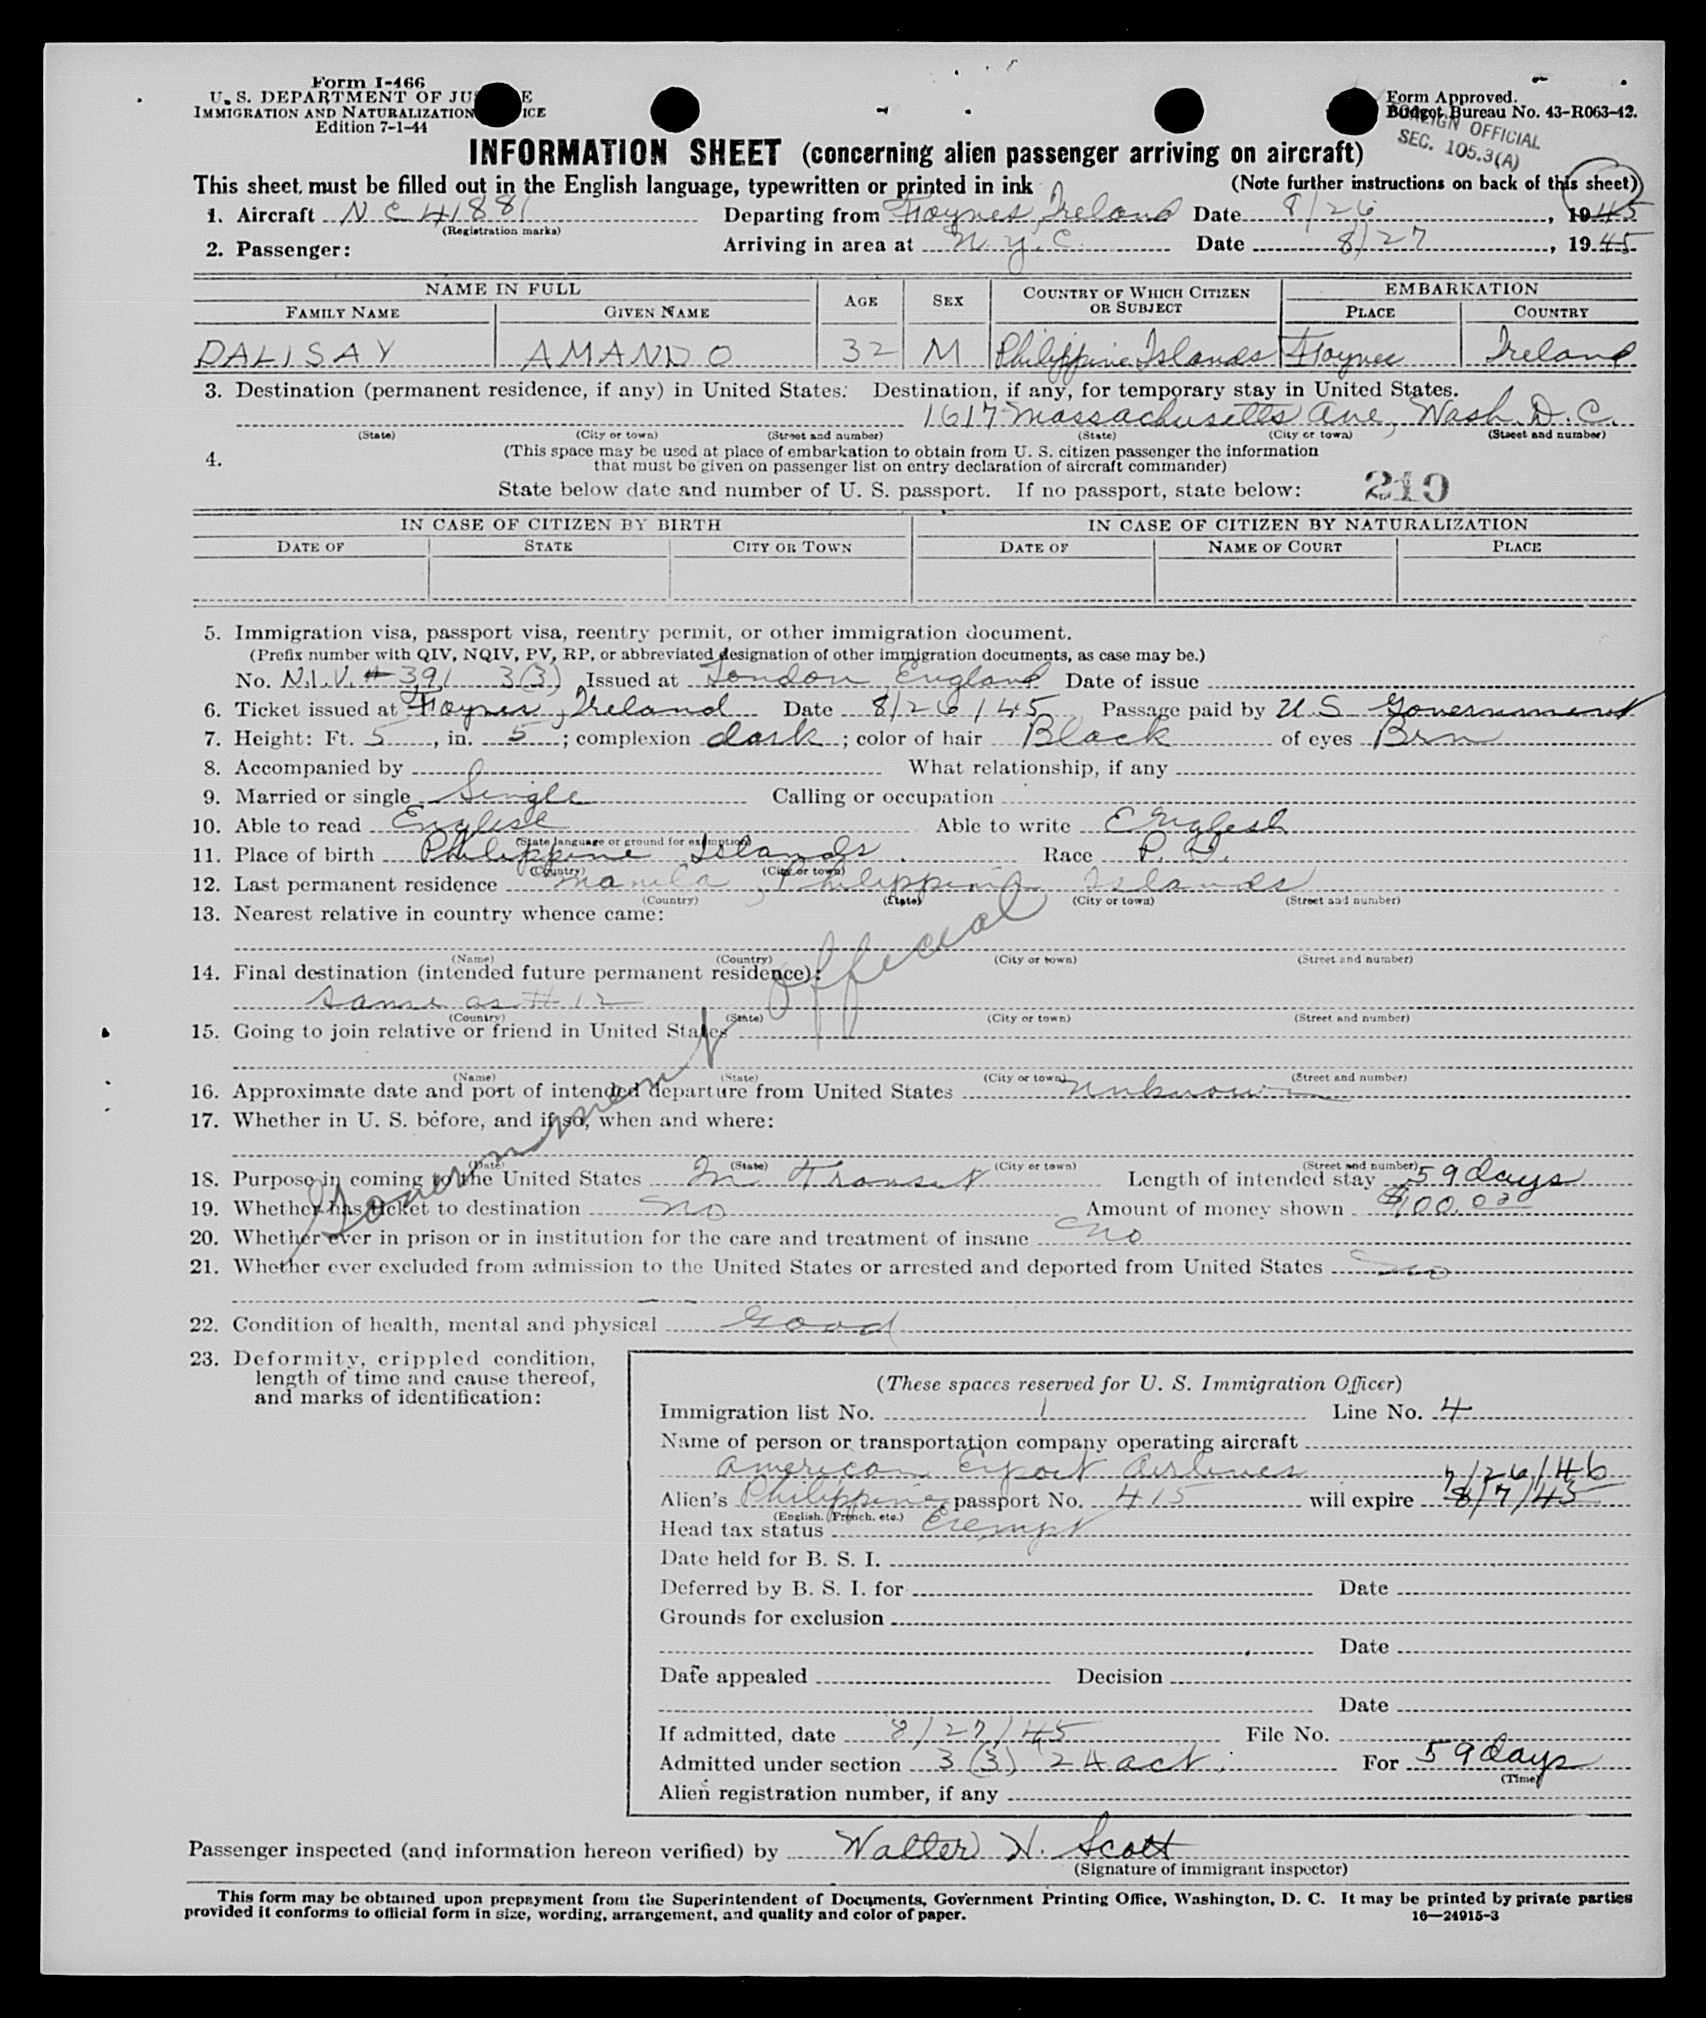 Form I-466
U. S. DEPARTMENT OF JU E
IMMIGRATION AND NATURALIZATION ICE
Edition 7-1-44
Form Approved.
Budget Bureau No. 43-R063-42.
FOREIGN OFFICIAL
SEC. 105.3(A)
INFORMATION SHEET (concerning alien passenger arriving on aircraft)
This sheet must be filled out in the English language, typewritten or printed in ink (Note further instructions on back of this sheet)
1. Aircraft NC 41881 Departing from Foynes, Ireland Date 8/26, 1945
(Registration marks)
2. Passenger: Arriving in area at N.Y.C. Date 8/27, 1945
NAME IN FULL AGE SEX COUNTRY OF WHICH CITIZEN OR SUBJECT EMBARKATION
FAMILY NAME GIVEN NAME PLACE COUNTRY
DALISAY AMANDO 32 M Philippine Islands Foynes Ireland
3. Destination (permanent residence, if any) in United States. Destination, if any, for temporary stay in United States.
1617 Massachusetts Ave, Wash. D.C.
(State) (City or town) (Street and number) (State) (City or town) (Street and number)
4. (This space may be used at place of embarkation to obtain from U. S. citizen passenger the information
that must be given on passenger list on entry declaration of aircraft commander)
State below date and number of U. S. passport. If no passport, state below: 210
IN CASE OF CITIZEN BY BIRTH IN CASE OF CITIZEN BY NATURALIZATION
DATE OF STATE CITY OR TOWN DATE OF NAME OF COURT PLACE
5. Immigration visa, passport visa, reentry permit, or other immigration document.
(Prefix number with QIV, NQIV, PV, RP, or abbreviated designation of other immigration documents, as case may be.)
No. N.I.V. # 391 3(3) Issued at London, England Date of issue
6. Ticket issued at Foynes, Ireland Date 8/26/45 Passage paid by U.S. Government
7. Height: Ft. 5, in. 5; complexion dark; color of hair Black of eyes Brn
8. Accompanied by What relationship, if any
9. Married or single Single Calling or occupation
10. Able to read English Able to write English
(State language or ground for exemption)
11. Place of birth Philippine Islands Race P.I.
(Country) (City or town)
12. Last permanent residence Manila, Philippine Islands
(Country) (State) (City or town) (Street and number)
13. Nearest relative in country whence came:
(Name) (Country) (City or town) (Street and number)
14. Final destination (intended future permanent residence):
same as # 12
(Country) (State) (City or town) (Street and number)
15. Going to join relative or friend in United States
(Name) (State) (City or town) (Street and number)
Government Official
16. Approximate date and port of intended departure from United States unknown
17. Whether in U. S. before, and if so, when and where:
(Date) (State) (City or town) (Street and number)
18. Purpose in coming to the United States In Transit Length of intended stay 59 days
19. Whether has ticket to destination no Amount of money shown $100.00
20. Whether ever in prison or in institution for the care and treatment of insane no
21. Whether ever excluded from admission to the United States or arrested and deported from United States no
22. Condition of health, mental and physical Good
23. Deformity, crippled condition,
length of time and cause thereof,
and marks of identification:
(These spaces reserved for U. S. Immigration Officer)
Immigration list No. 1 Line No. 4
Name of person or transportation company operating aircraft
American Export Airlines 7/26/46
Alien's Philippine passport No. 415 will expire 8/7/45
(English, French, etc.)
Head tax status Exempt
Date held for B. S. I.
Deferred by B. S. I. for Date
Grounds for exclusion
Date
Date appealed Decision
Date
If admitted, date 8/27/45 File No.
Admitted under section 3(3) '24 act. For 59 days
(Time)
Alien registration number, if any
Passenger inspected (and information hereon verified) by Walter H. Scott
(Signature of immigrant inspector)
This form may be obtained upon prepayment from the Superintendent of Documents, Government Printing Office, Washington, D. C. It may be printed by private parties
provided it conforms to official form in size, wording, arrangement, and quality and color of paper. 16—24915-3